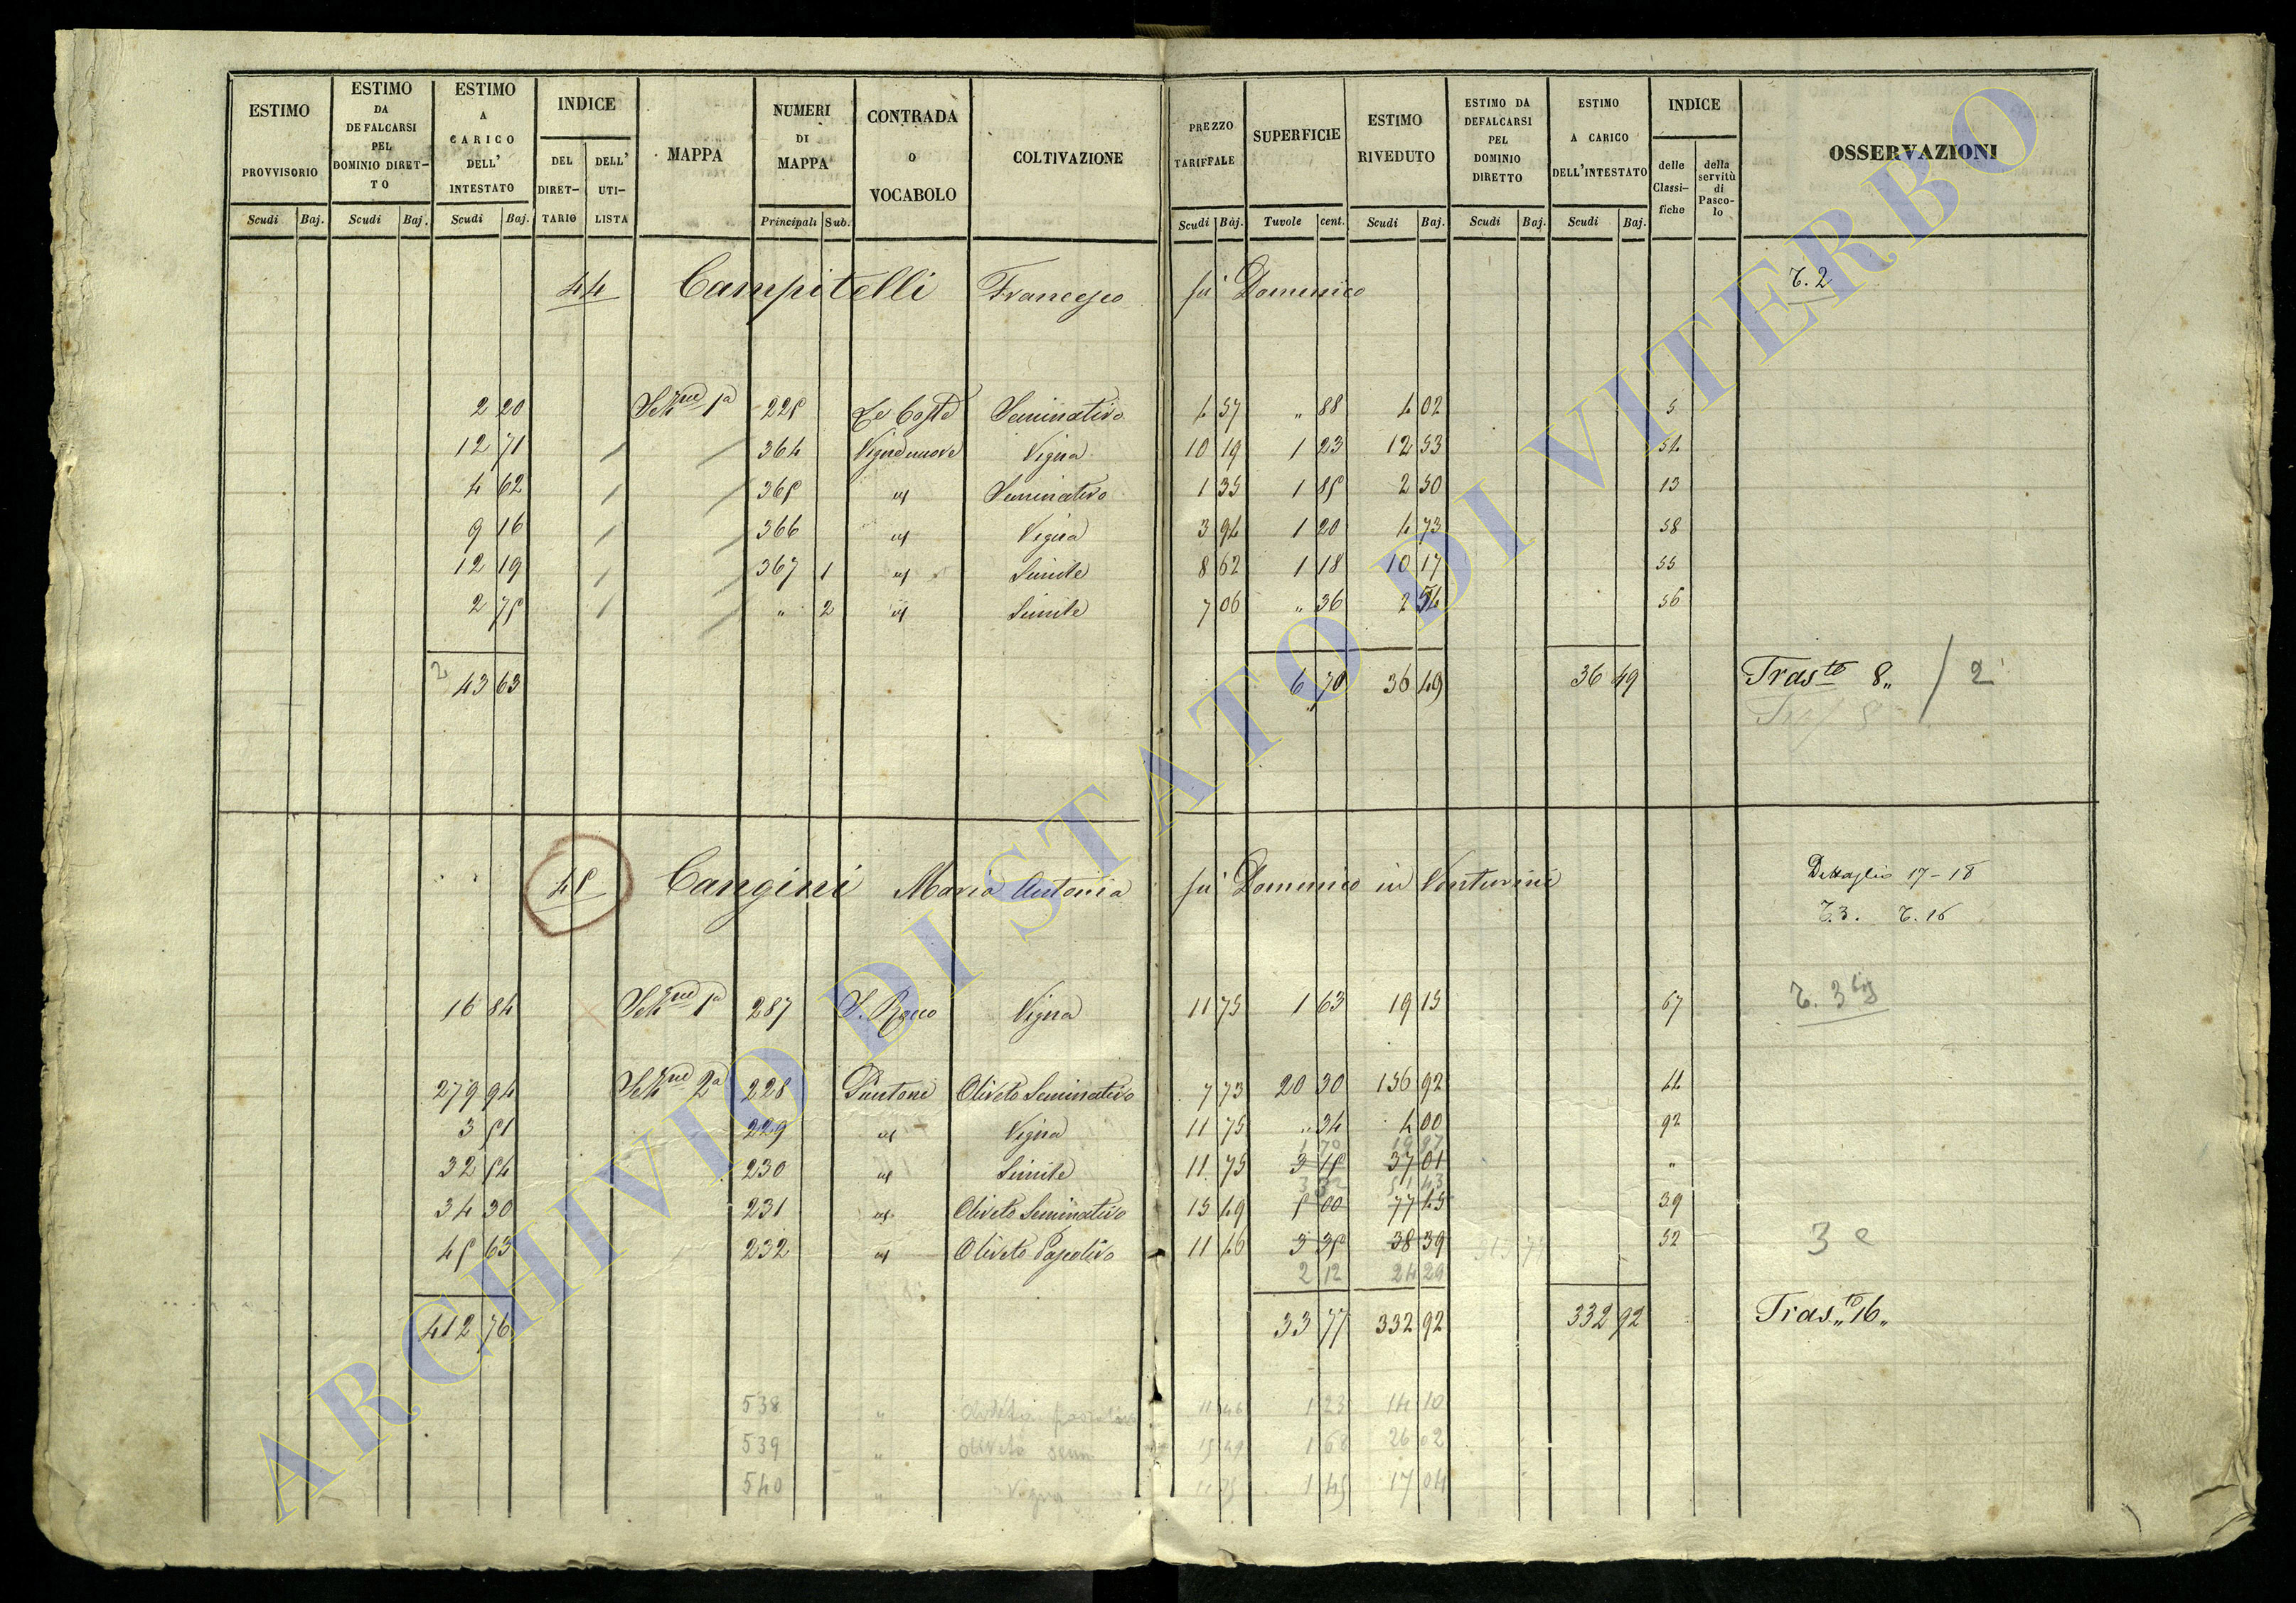 ESTIMO PROVVISORIO Scudi Baj.
ESTIMO DA DEFALCARSI PEL DOMINIO DIRET–TO Scudi Baj.
ESTIMO A CARICO DELL' INTESTATO Scudi Baj.
INDICE DEL DIRET–TARIO DELL' UTI–LISTA
MAPPA
NUMERI DI MAPPA Principali Sub.
CONTRADA O VOCABOLO
COLTIVAZIONE
PREZZO TARIFFALE Scudi Baj.
SUPERFICIE Tavole cent.
ESTIMO RIVEDUTO Scudi Baj.
ESTIMO DA DEFALCARSI PEL DOMINIO DIRETTO Scudi Baj.
ESTIMO A CARICO DELL'INTESTATO Scudi Baj.
INDICE delle Classi–fiche della servitù di Pasco–lo
OSSERVAZIONI
44 Campitelli Francesco fu Domenico T. 2
2 20 Sez.ne 1a 225 Le Coste Seminativo 4 57 " 88 4 02 5
12 71 / / 364 Vigne nuove Vigna 10 19 1 23 12 53 54
4 62 / / 365 id Seminativo 1 35 1 85 2 50 13
9 16 / / 366 id Vigna 3 94 1 20 4 73 58
12 19 / / 367 1 id Simile 8 62 1 18 10 17 55
2 75 / / " 2 id Simile 7 06 " 36 2 54 56
2 43 63 6 70 36 49 36 49 Tras.to 8,, / 2
45 Cangini Maria Antonia fu Domenico in Venturini Dettaglio 17 – 18
T. 3. T. 16
16 84 Sez.ne 1a 287 S. Rocco Vigna 11 75 1 63 19 15 67 T. 3 bis
279 94 Sez.ne 2a 228 Pantone Oliveto Seminativo 7 73 20 30 156 92 44
3 51 229 id Vigna 11 75 " 34 4 00 92
1 70 19 97
32 54 230 id Simile 11 75 3 15 37 01 "
3 32 51 43
34 30 231 id Oliveto Seminativo 15 49 5 00 77 45 39
45 63 232 id Oliveto Pascolivo 11 46 3 35 38 39 52 3 e
2 12 24 29
412 76 33 77 332 92 332 92 Tras.to 16,,
538 " Oliveto pascolivo 11 46 1 23 14 10
539 " oliveto sem 15 49 1 68 26 02
540 " Vigna 11 75 1 45 17 04
ARCHIVIO DI STATO DI VITERBO